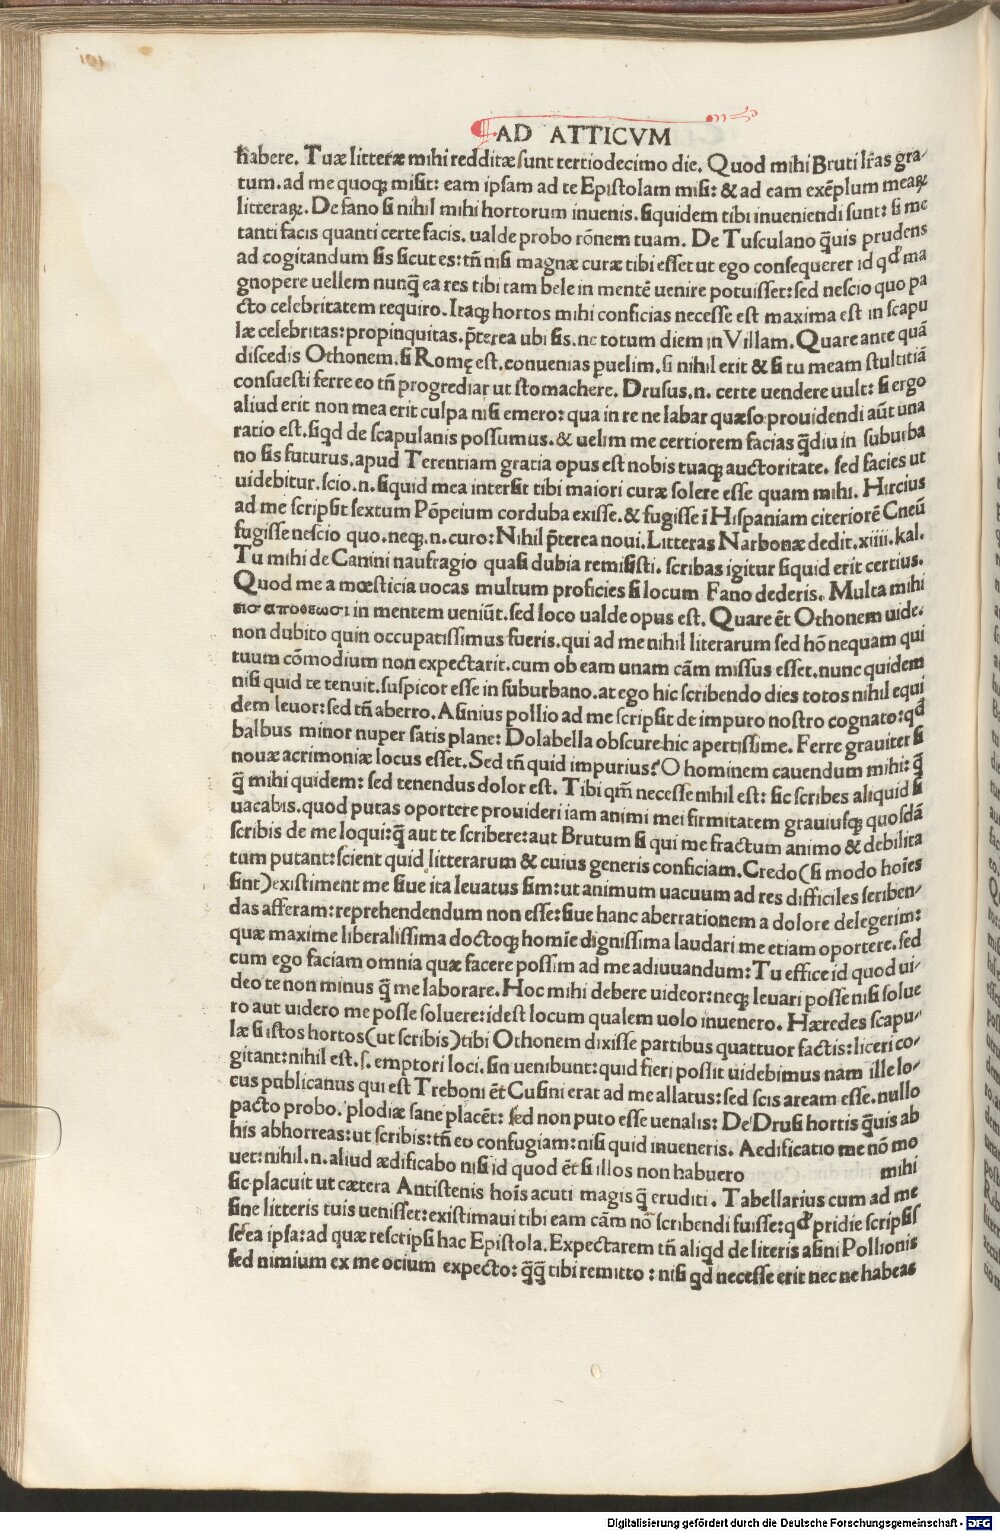 AD ATTICVM
habere. Tuæ litteræ mihi redditæ sunt tertiodecimo die. Quod mihi Bruti lr̃as gra-
tum. ad me quoqꝫ misit: eam ipsam ad te Epistolam misi: & ad eam exẽplum meaꝝ
litteraꝝ. De fano si nihil mihi hortorum inuenis. siquidem tibi inueniendi sunt: si me
tanti facis quanti certe facis. ualde probo rõnem tuam. De Tusculano q̃uis prudens
ad cogitandum sis sicut es: tñ nisi magnæ curæ tibi esset ut ego consequerer id qd̃ ma
gnopere uellem nunq̃ ea res tibi tam bele in mentẽ uenire potuisset: sed nescio quo pa
cto celebritatem requiro. Itaqꝫ hortos mihi conficias necesse est maxima est in scapu
læ celebritas: propinquitas. p̃terea ubi sis. ne totum diem in Villam. Quare ante quã
discedis Othonem. si Romę est. conuenias puelim. si nihil erit & si tu meam stultitiã
consuesti ferre eo tñ progrediar ut stomachere. Drusus. n. certe uendere uult: si ergo
aliud erit non mea erit culpa nisi emero: qua in re ne labar quæso prouidendi aũt una
ratio est. siqd de scapulanis possumus. & uelim me certiorem facias q̃diu in suburba
no sis futurus. apud Terentiam gratia opus est nobis tuaqꝫ auctoritate. sed facies ut
uidebitur. scio. n. siquid mea intersit tibi maiori curæ solere esse quam mihi. Hircius
ad me scripsit sextum Põpeium corduba exisse. & fugisse ĩ Hispaniam citeriorẽ Cneũ
fugisse nescio quo. neqꝫ. n. curo: Nihil p̃terea noui. Litteras Narbonæ dedit. xiiii. kal.
Tu mihi de Canini naufragio quasi dubia remisisti. scribas igitur siquid erit certius.
Quod me a mœsticia uocas multum proficies si locum Fano dederis. Multa mihi
εισ αποθεωσι in mentem ueniũt. sed loco ualde opus est. Quare ẽt Othonem uide.
non dubito quin occupatissimus fueris. qui ad me nihil literarum sed hõ nequam qui
tuum cõmodium non expectarit. cum ob eam unam cãm missus esset. nunc quidem
nisi quid te tenuit. suspicor esse in suburbano. at ego hic scribendo dies totos nihil equi
dem leuor: sed tñ aberro. Asinius pollio ad me scripsit de impuro nostro cognato: qd̃
balbus minor nuper satis plane: Dolabella obscure hic apertissime. Ferre grauiter si
nouæ acrimoniæ locus esset. Sed tñ quid impurius? O hominem cauendum mihi: q̃
q̃ mihi quidem: sed tenendus dolor est. Tibi qm̃ necesse nihil est: sic scribes aliquid si
uacabis. quod putas oportere prouideri iam animi mei firmitatem grauiusqꝫ quosdã
scribis de me loqui: q̃ aut te scribere: aut Brutum si qui me fractum animo & debilita
tum putant: scient quid litterarum & cuius generis conficiam. Credo (si modo hoĩes
sint) existiment me siue ita leuatus sim: ut animum uacuum ad res difficiles scriben-
das afferam: reprehendendum non esse: siue hanc aberrationem a dolore delegerim:
quæ maxime liberalissima doctoqꝫ homĩe dignissima laudari me etiam oportere. sed
cum ego faciam omnia quæ facere possim ad me adiuuandum: Tu effice id quod ui-
deo te non minus q̃ me laborare. Hoc mihi debere uideor: neqꝫ leuari posse nisi solue
ro aut uidero me posse soluere: idest locum qualem uolo inuenero. Hæredes scapu-
læ si istos hortos (ut scribis) tibi Othonem dixisse partibus quattuor factis: liceri co-
gitant: nihil est. s. emptori loci. sin uenibunt: quid fieri possit uidebimus nam ille lo-
cus publicanus qui est Treboni ẽt Cusini erat ad me allatus: sed scis aream esse. nullo
pacto probo. plodiæ sane placẽt: sed non puto esse uenalis: De Drusi hortis q̃uis ab
his abhorreas: ut scribis: tñ eo confugiam: nisi quid inueneris. Aedificatio me nõ mo
uet: nihil. n. aliud ædificabo nisi id quod ẽt si illos non habuero mihi
sic placuit ut cætera Antistenis hoĩs acuti magis q̃ eruditi. Tabellarius cum ad me
sine litteris tuis uenisset: existimaui tibi eam cãm nõ scribendi fuisse: qd̃ pridie scripsis
se ea ipsa: ad quæ rescripsi hac Epistola. Expectarem tñ aliqd de literis asini Pollionis
sed nimium ex me ocium expecto: q̃q̃ tibi remitto: nisi qd necesse erit nec ne habeas
Digitalisierung gefördert durch die Deutsche Forschungsgemeinschaft - DFG